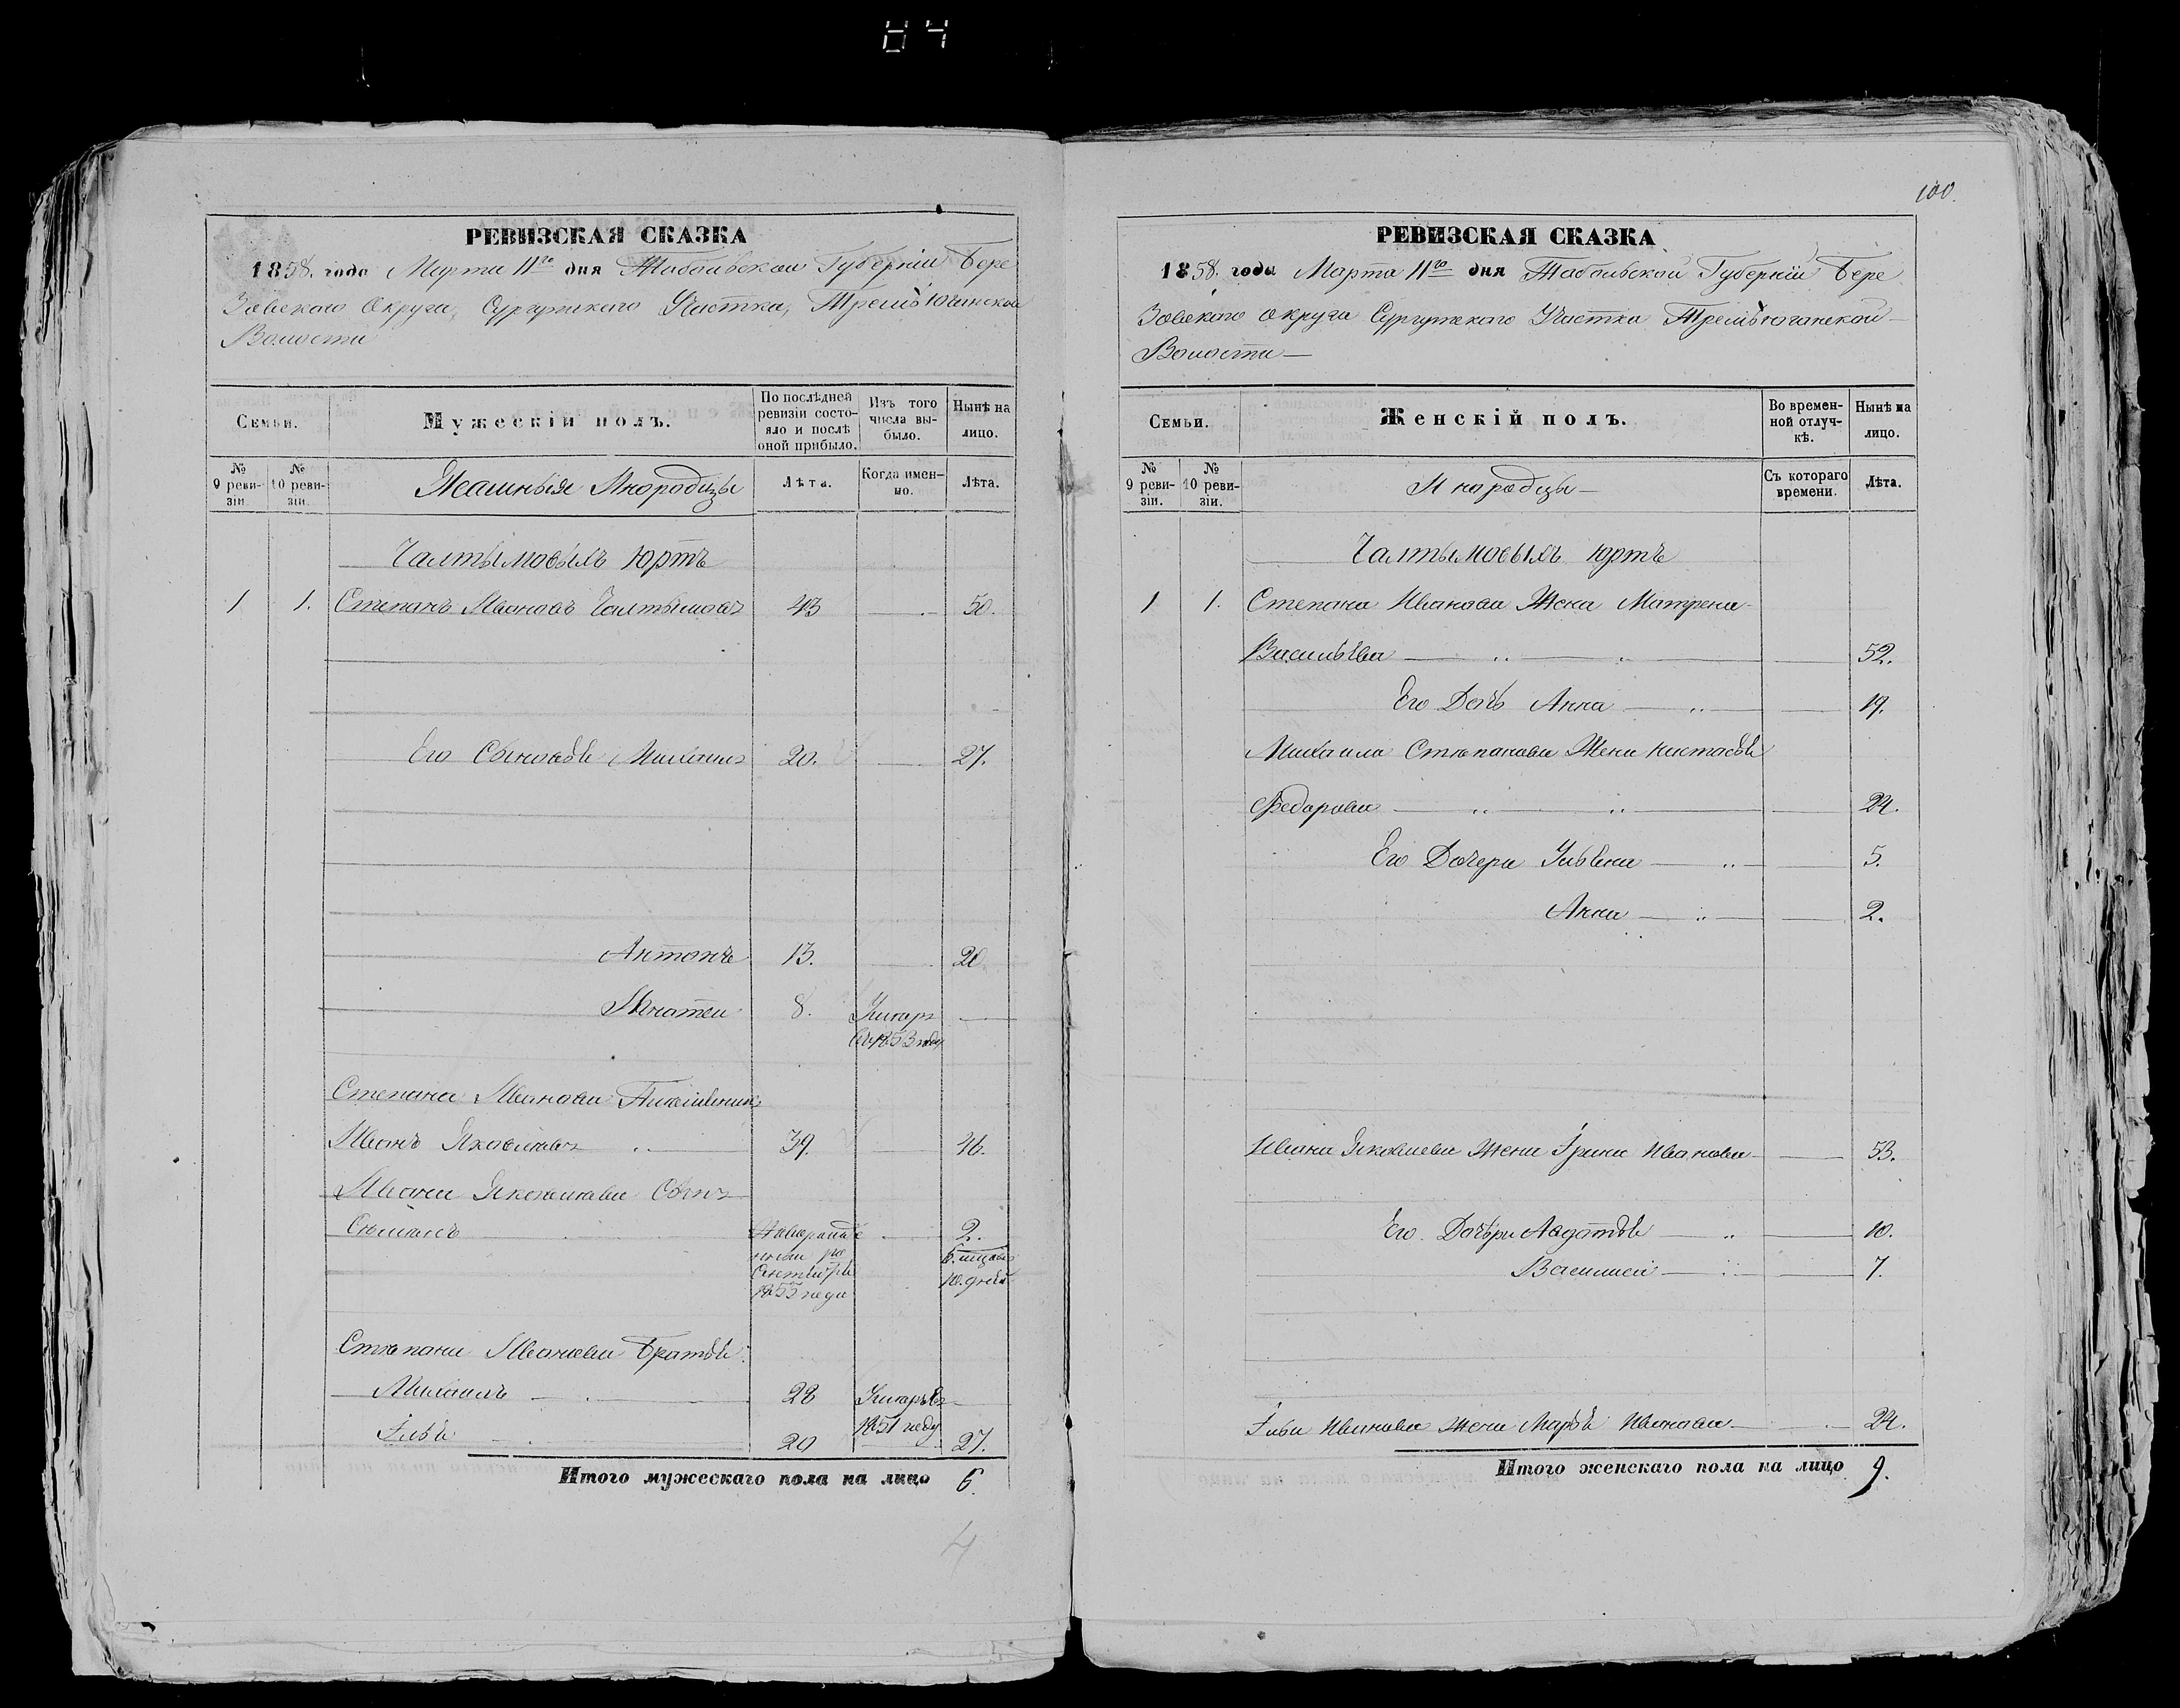 84
РЕВИЗСКАЯ СКАЗКА
1858. года Марта 11го дня Тобольской Губерніи Бере
зовскаго Округа, Сургутскаго Участка, Тремъюганской
Волости
Семьи.
Мужескій полъ.
По послѣдней ревизіи состояло и послѣ оной прибыло.
Изъ того числа выбыло.
Нынѣ на лицо.
№ 9 ревизіи
№ 10 ревизіи.
Ясашныя Инородцы
Лѣта.
Когда именно.
Лѣта.
Чалтымовыхъ юртъ
1 1. Степанъ Ивановъ Чалтымовъ 43 50.
Его Сыновья Михаилъ 20. 27.
Антонъ 13. 20.
Игнатей 8. Умеръ
въ 1853 году
Степана Иванова Племянникъ
Иванъ Яковлевъ 39. 46.
Ивана Яковлева Сынъ
Новорожде 2.
нный 6. мѣсяцовъ
Сентября 10. дней
1855 года
Степана Иванова Братья:
Михаилъ 28 Умеръ въ
1851 году
Илья 20 27.
Итого мужескаго пола на лицо 6.
4
100.
РЕВИЗСКАЯ СКАЗКА
1858. года Марта 11го дня Тобольской Губерніи Бере
зовскаго Округа Сургутскаго Участка Тремъюганской
Волости
Семьи.
Женскій полъ.
Во временной отлучкѣ.
Нынѣ на лицо.
№ 9 ревизіи.
№ 10 ревизіи.
Инородцы
Съ котораго времени.
Лѣта.
Чалтымовыхъ юртъ
1 1. Степана Иванова Жена Матрена
Васильева 52.
Его Дочь Анна 19.
Михаила Степанова Жена Настасья
Федорова 24.
Его Дочери Ульяна 5.
Анна 2.
Ивана Яковлева Жена Ирина Иванова 53.
Его Дочери Агафья 10.
7.
Ильи Иванова Жена Марья Иванова 24.
Итого женскаго пола на лицо 9.